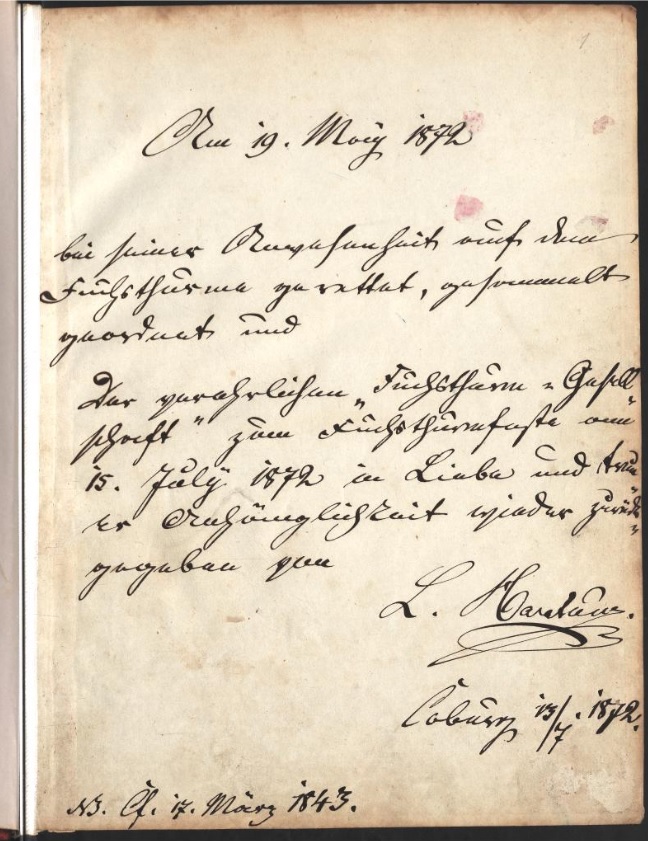 1
Am 19. May 1872
bei seiner Anwesenheit auf dem
Fuchsthurme gerettet, gesammelt
geordnet und
Der verehrlichen „Fuchsthurm-Gesell-
schaft" zum Fuchsthurmfeste am
15. July 1872 in Liebe und treu-
er Anhänglichkeit wieder zurück-
gegeben von
L.
Coburg 13/7. 1872.
NB. Cf. 17. März 1843.